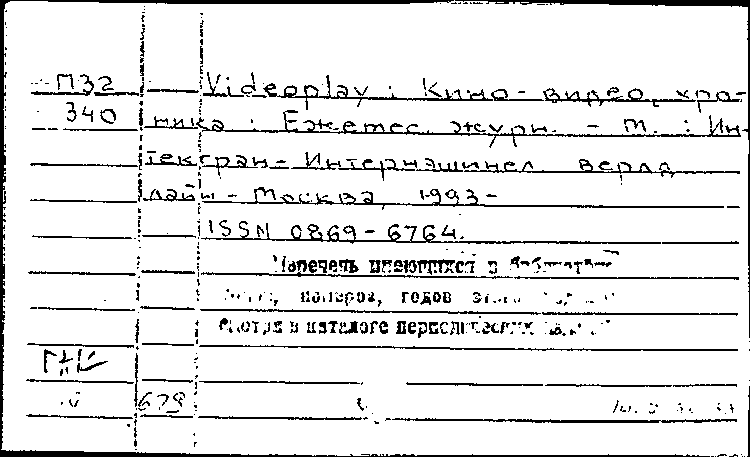 П32 Videoplay : Кино-видео, хро-
340 ника : Ежемес. журн. - М. : Ин-
тексран-Интернэшинел верлд
лайн-Москва, 1993-
ISSN 0869-6764.
Перечень имеющихся в
номеров, годов этого
смотри в каталоге периодических
679